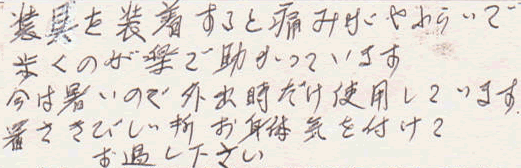 装具を装着すると痛みがやわらいで
歩くのが楽で助かっています
今は暑いので外出時だけ使用しています。
暑さきびしい折お身体気を付けて
お過し下さい